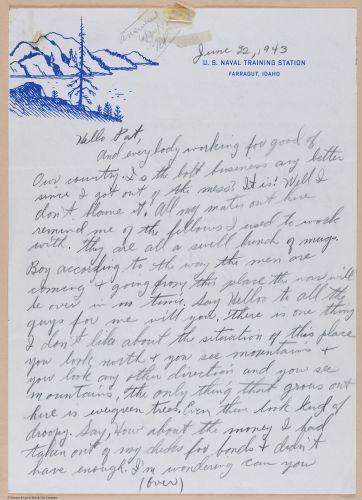 answered
June 22, 1943
U. S. NAVAL TRAINING STATION
FARRAGUT, IDAHO
Hello Pat,
And everybody working for good of
Our country. Is the bolt business any better
since I got out of the mess? It is! Well I
don't blame it. All my mates out here
remind me of the fellows I used to work
with. They are all a swell bunch of mugs.
Boy according to the way the men are
coming + going from this place the war will
be over in no time. Say Hello to all the
guys for me will you. there is one thing
I don't like about the situation of this place
you look north + you see mountains +
you look any other direction and you see
mountains. the only thing that grows out
here is evergreen trees. Even them look kind of
droopy. Say, How about the money I had
taken out of my checks for bonds + didn't
have enough. I'm wondering can you
(over)